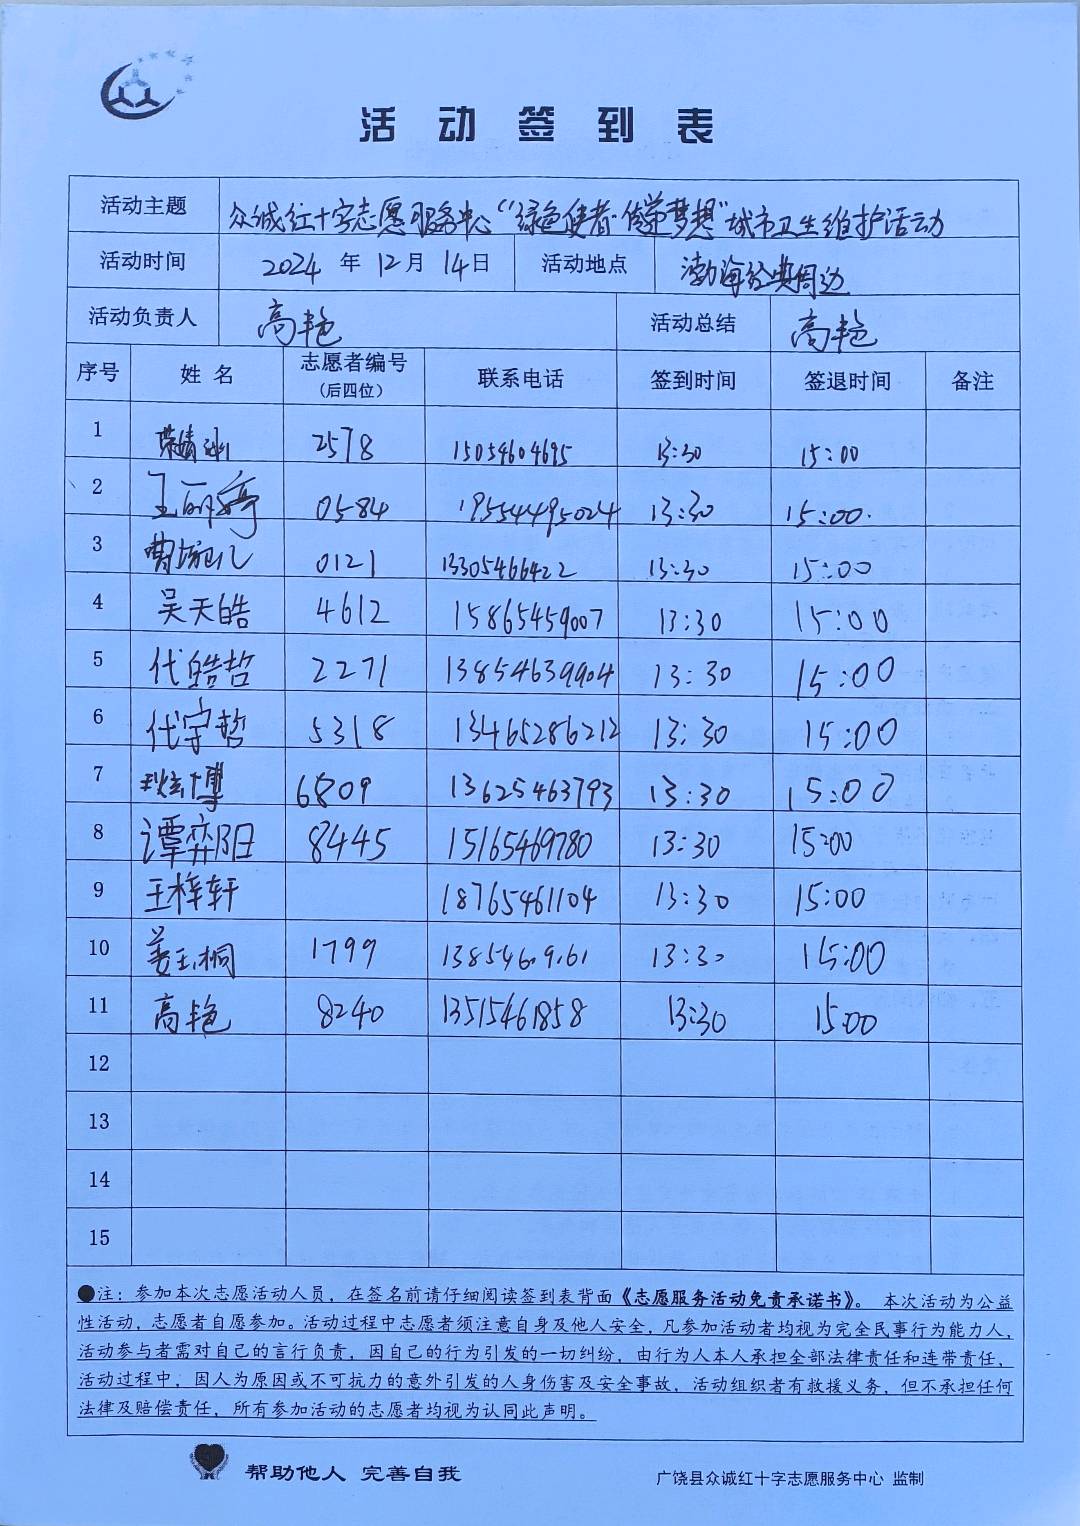 活动签到表
活动主题 众诚红十字志愿服务中心“绿色使者·传递梦想”城市卫生维护活动
活动时间 2024 年 12 月 14 日 活动地点 渤海经典周边
活动负责人 高艳 活动总结 高艳
序号 姓名 志愿者编号（后四位） 联系电话 签到时间 签退时间 备注
1 2578 15054604695 13:30 15:00
2 王丽婷 0584 19554495024 13:30 15:00.
3 0121 13305466422 13:30 15:00
4 吴天皓 4612 15865459007 13:30 15:00
5 代皓哲 2271 13854639904 13:30 15:00
6 代宇哲 5318 13465286212 13:30 15:00
7 6809 13625463793 13:30 15:00
8 谭弈阳 8445 15165469780 13:30 15:00
9 王梓轩 18765461104 13:30 15:00
10 姜玉桐 1799 13:30 15:00
11 高艳 8240 13515461858 13:30 15:00
12
13
14
15
●注：参加本次志愿活动人员，在签名前请仔细阅读签到表背面《志愿服务活动免责承诺书》。本次活动为公益
性活动，志愿者自愿参加。活动过程中志愿者须注意自身及他人安全，凡参加活动者均视为完全民事行为能力人，
活动参与者需对自己的言行负责，因自己的行为引发的一切纠纷，由行为人本人承担全部法律责任和连带责任，
活动过程中，因人为原因或不可抗力的意外引发的人身伤害及安全事故，活动组织者有救援义务，但不承担任何
法律及赔偿责任，所有参加活动的志愿者均视为认同此声明。
帮助他人 完善自我 广饶县众诚红十字志愿服务中心 监制